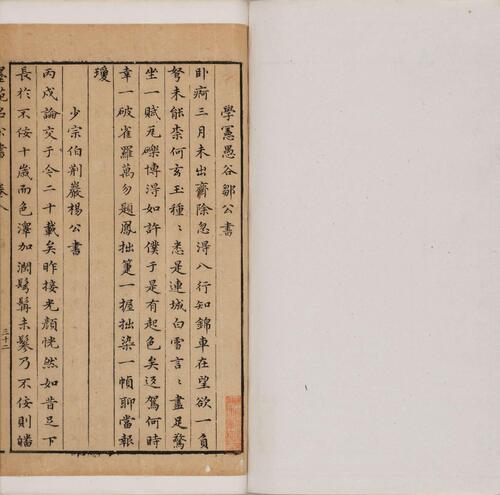 學憲愚谷鄒公書
卧痾三月未出齋除忽得八行知錦車在望欲一負
弩未能柰何玄玉種〻悉是連城白雪言〻盡足驚
坐一賦瓦礫博得如許僕于是有起色矣迓駕何時
幸一破雀羅萬勿題鳳拙箑一握拙染一幀聊當報
瓊
少宗伯荆巖楊公書
丙戌論交于令二十載矣昨接光顔恍然如昔足下
長於不佞十歲而色澤加潤鬚髯未鬖乃不佞則皤
墨苑名公書 卷八 三十二